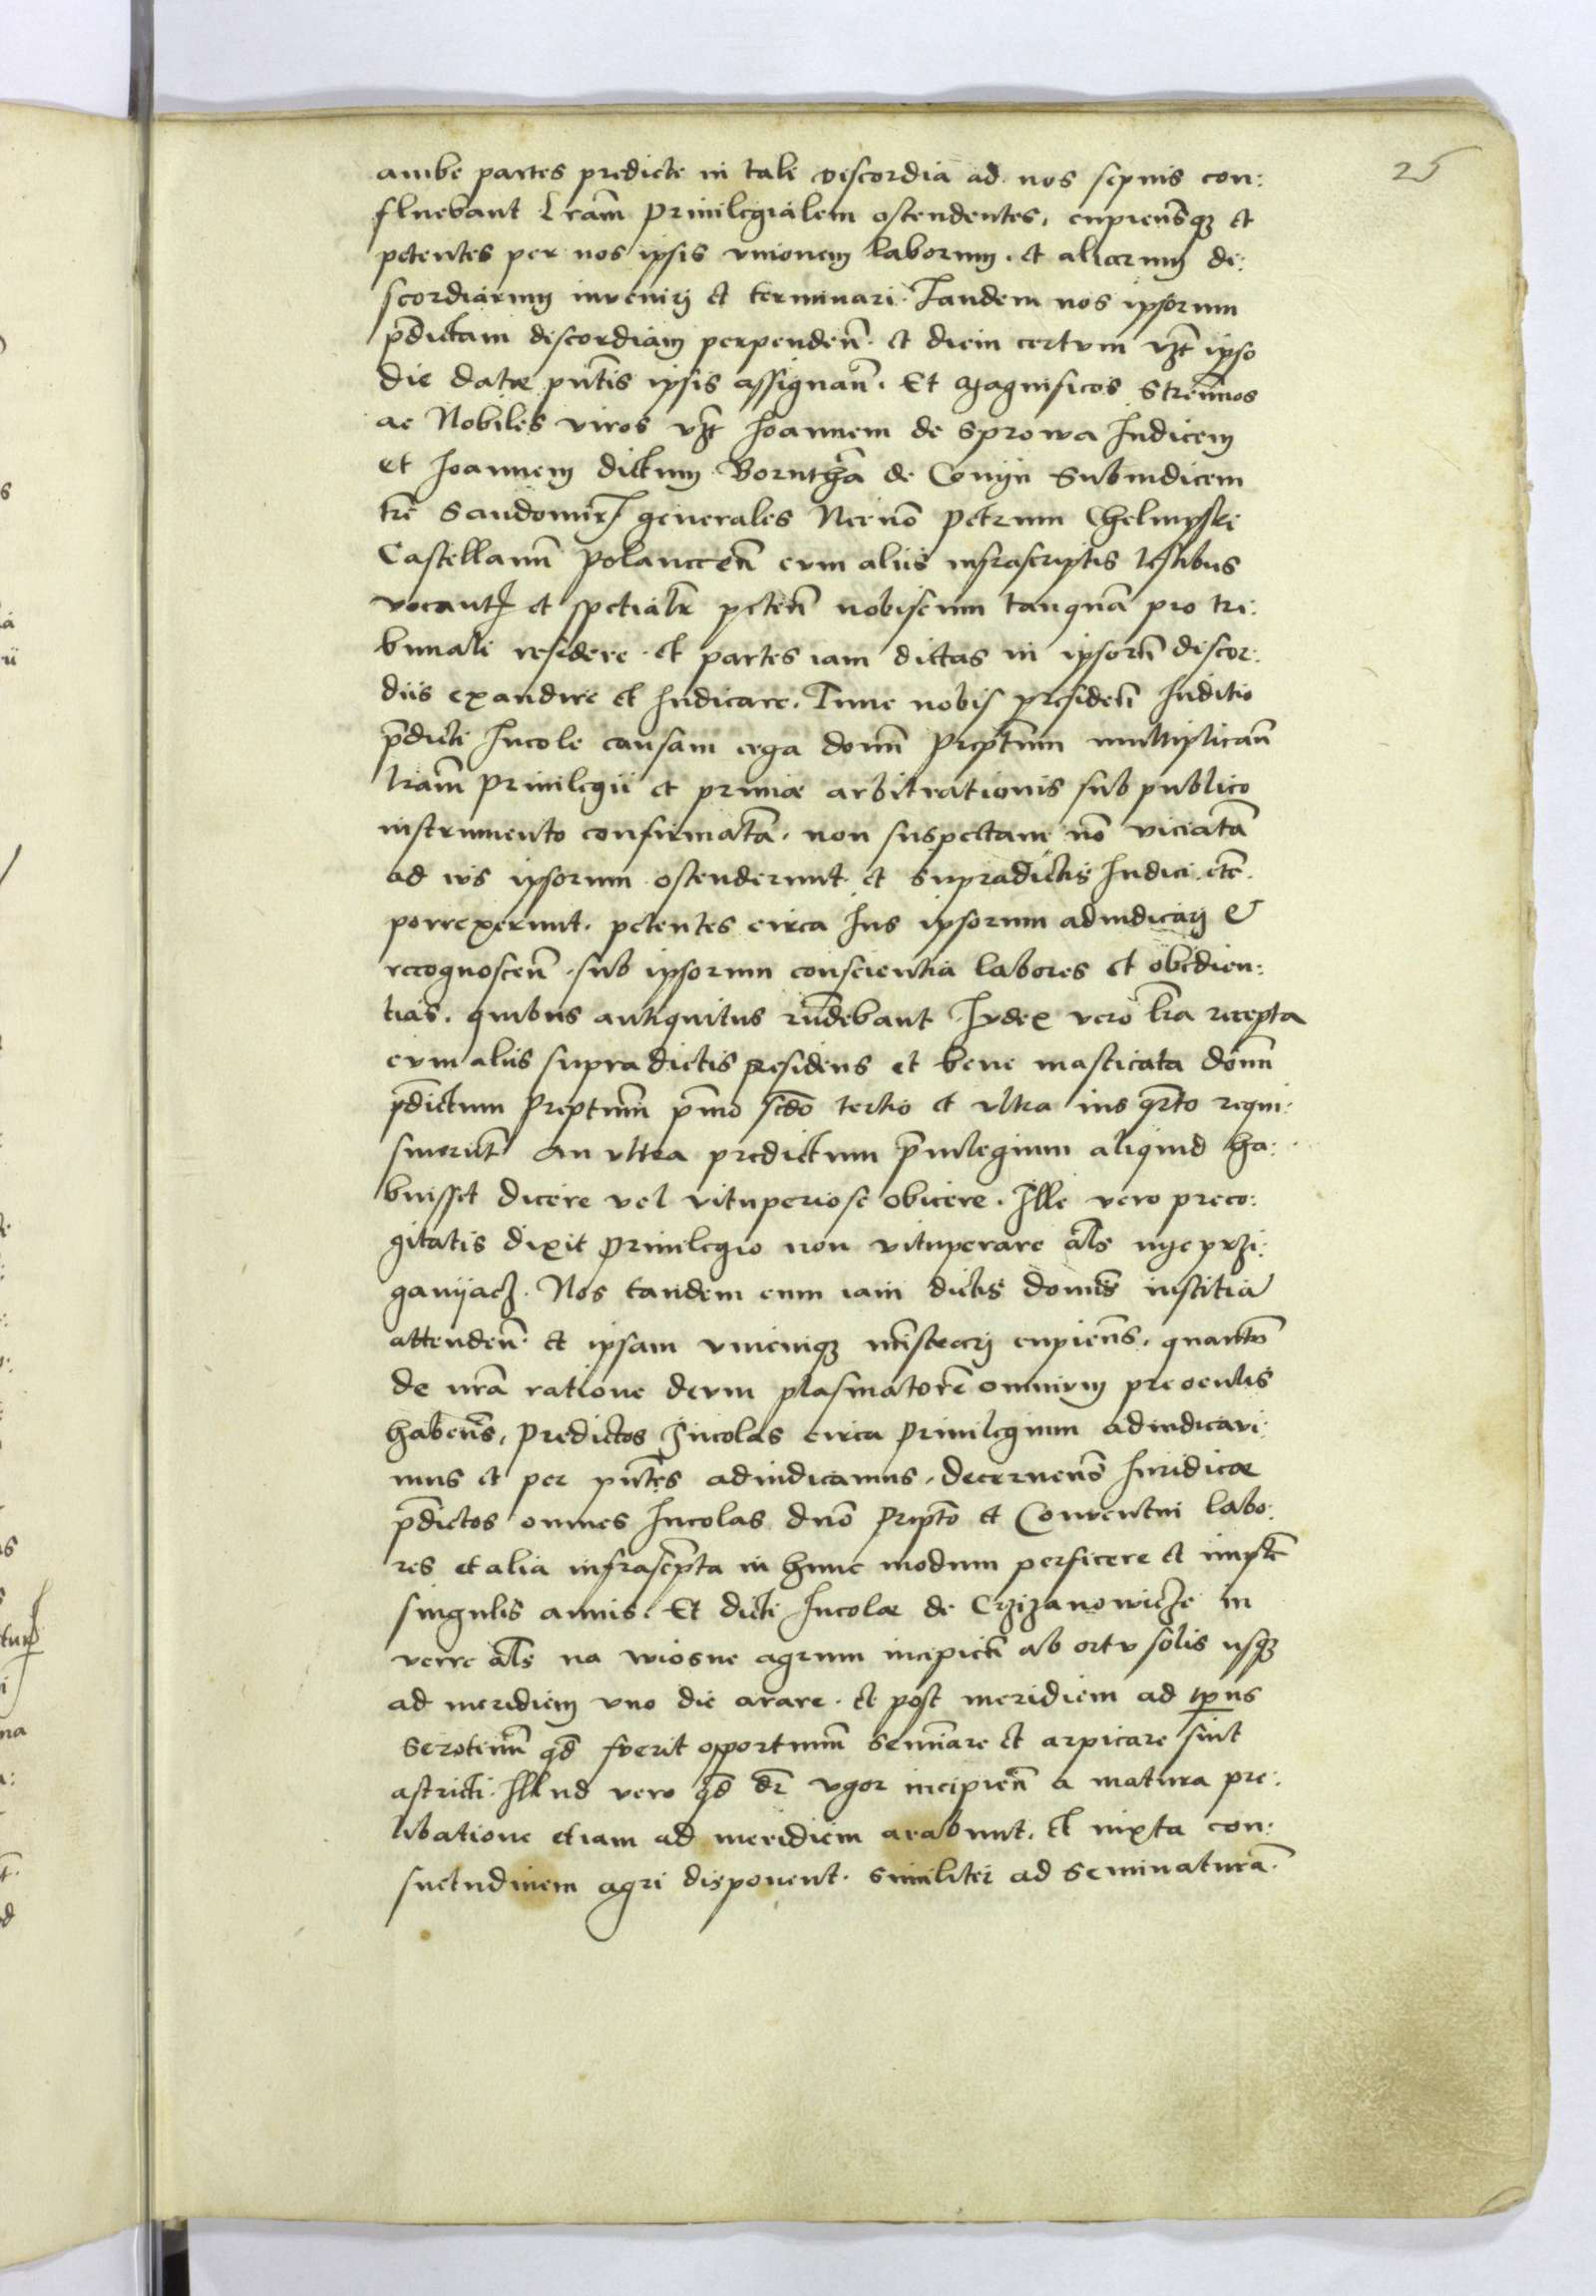 25
ambe partes predicte in tali discordia ad nos sepius con:
fluebant Lram̄ Priuilegialem ostendentes, cupiens̄qʒ et
petentes per nos ipsis vnionem laborum. et aliarum di:
scordiarum inveniri et terminari. Tandem nos ipsorum
p̄dictam discordiam perpendeñ. et diem certvm vʒt ipso
die datæ pñtis ipsis assignañ. Et Magnificos Strennuos
ac Nobiles viros vʒt Joannem de Sprowa Judicem
et Joannem dictum Borutha de Conijn Subiudicem
tr̄e Sandomir̄ generales Necnō Petrum Chelmsski
Castellanū Polaneceñ cvm aliis infrascriptis testibus
vocant et spetialr̄ peteñ nobiscum tanquā pro tri:
bunali residere. et partes iam dictas in ipsorū discor:
diis exaudire et Judicare. Tunc nobis presideñ Juditio
p̄dicti Incole causam erga domū Prepītum multiplicañ
lram̄ Priuilegii et primæ arbitrationis sub publico
instrumento confirmatā. non suspectam nō viciatā
ad ivs ipsorum ostenderunt et supradictis Judici etc̄.
porrexerunt. petentes circa Jus ipsorum adiudicari &
recognosceñ. sub ipsorum conscientia labores et obedien:
tias. quibus antiquitus rūdebant. Jvdex vero lr̄a recepta
cvm aliis supradictis presidens et bene masticata domū
p̄dictum Preptum̄ pm̄o scd̄o tertio et vltra ius qr̄to requi:
siuerūt an vltra predictum p̄uilegium aliquid ha:
buisset dicere vel vituperiose obicere. Ille vero preco:
gitatis dixit Priuilegio non vituperare al̄s nye przi:
ganijacʒ. Nos tandem cum iam dictis domīs iustitia
attendeñ. et ipsam vnicuiqʒ mīstrari cupiens̄. quantū
de nr̄a ratione devm plasmatorē omnivm pre oculis
habens̄, Predictos Incolas circa Priuilegium adiudicaui:
mus et per pñtes adiudicamus. decernens̄ Juridice
p̄dictos omnes Incolas dnō Prepto et Conventui labo:
res et alia infrascp̄ta in hunc modum perficere et
singulis annis. Et dicti Incolæ de Czizanowicze in
verre al̄s na wiosne agrum incipieñ ab ortv solis usqʒ
ad meridiem vno die arare. et post meridiem ad tp̄us
Serotinū qd̄ fverit opportunū Seminare et arpicare sint
astricti. Illud vero qd̄ dr̄ vgor incipieñ a matura pre:
libatione etiam ad meridiem arabunt. et iuxta con:
suetudinem agri disponent. Similiter ad Seminaturā.